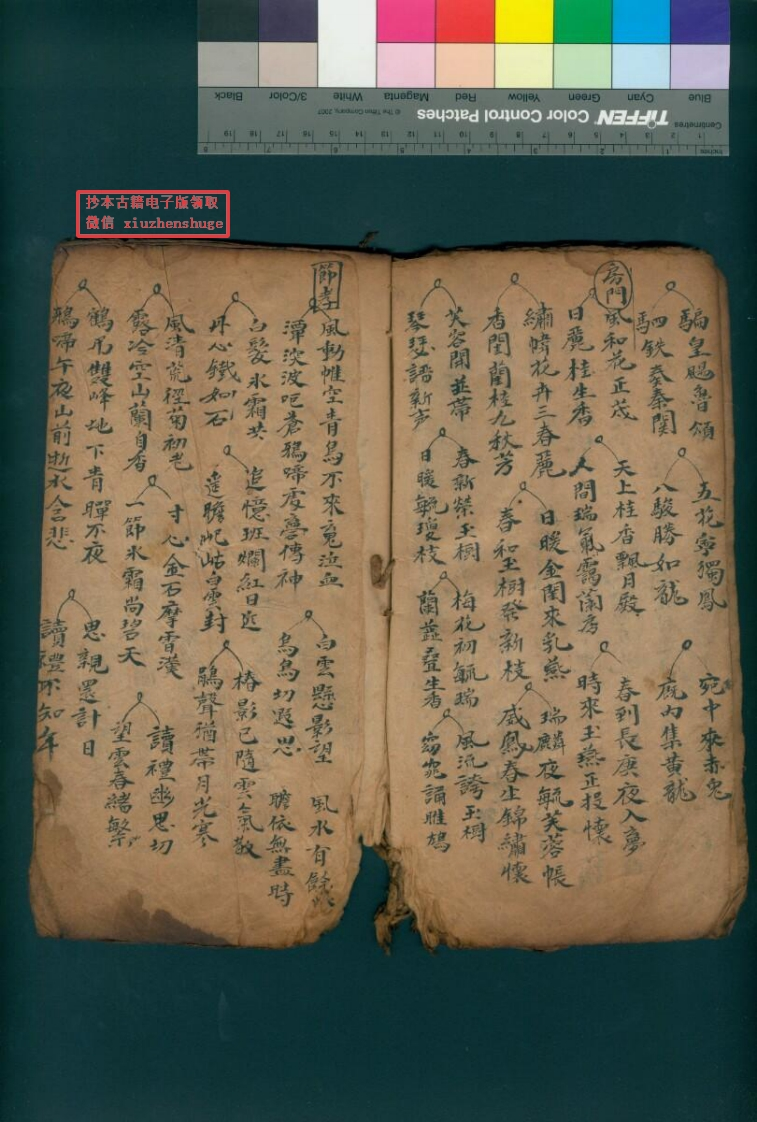 Blue
Cyan
Green
Yellow
Red
Magenta
White
3/Color
Black
Centimetres
TIFFEN Color Control Patches
© The Tiffen Company, 2007
Inches
抄本古籍电子版领取
微信 xiuzhenshuge
騧皇賜魯頌
駟鉄奏秦関
五花寧獨鳳
八駿勝如龍
宛中來赤兔
底內集黄龍
房門
風和花正茂
日麗桂生香
天上桂香飄月殿
人間瑞氣靄蘭房
春到長庚夜入夢
時來玉燕正投懷
繡幃花卉三春麗
香閨蘭桂九秋芳
日暖金閨來乳燕
春和玉樹發新枝
瑞麟夜毓芙蓉帳
威鳳春生錦繡懷
芙容開並蒂
琴瑟譜新声
春新榮玉樹
日暖毓瓊枝
梅花初毓瑞
蘭蕋疊生香
風流誇玉樹
窈窕誦雎鳩
節孝
風動帷空青鳥不來寃泣血
潭淡波吧蒼鴉啼處夢傳神
白雲懸影望
烏鳥切遐思
風水有餘
瞻依無盡時
白髮氷霜共
丹心鐵如石
追憶班斕紅日近
遥瞻屺岵白雲封
椿影已隨雲氣散
鵑聲猶帶月光寒
風清荒徑菊初老
露冷空山蘭自香
寸心金石摩雪漢
一節氷霜尚碧天
讀禮幽思切
望雲春緒繁
鶴吊雙峰地下青暉不夜
鴉啼午夜山前逝水含悲
思親還計日
讀禮不知年